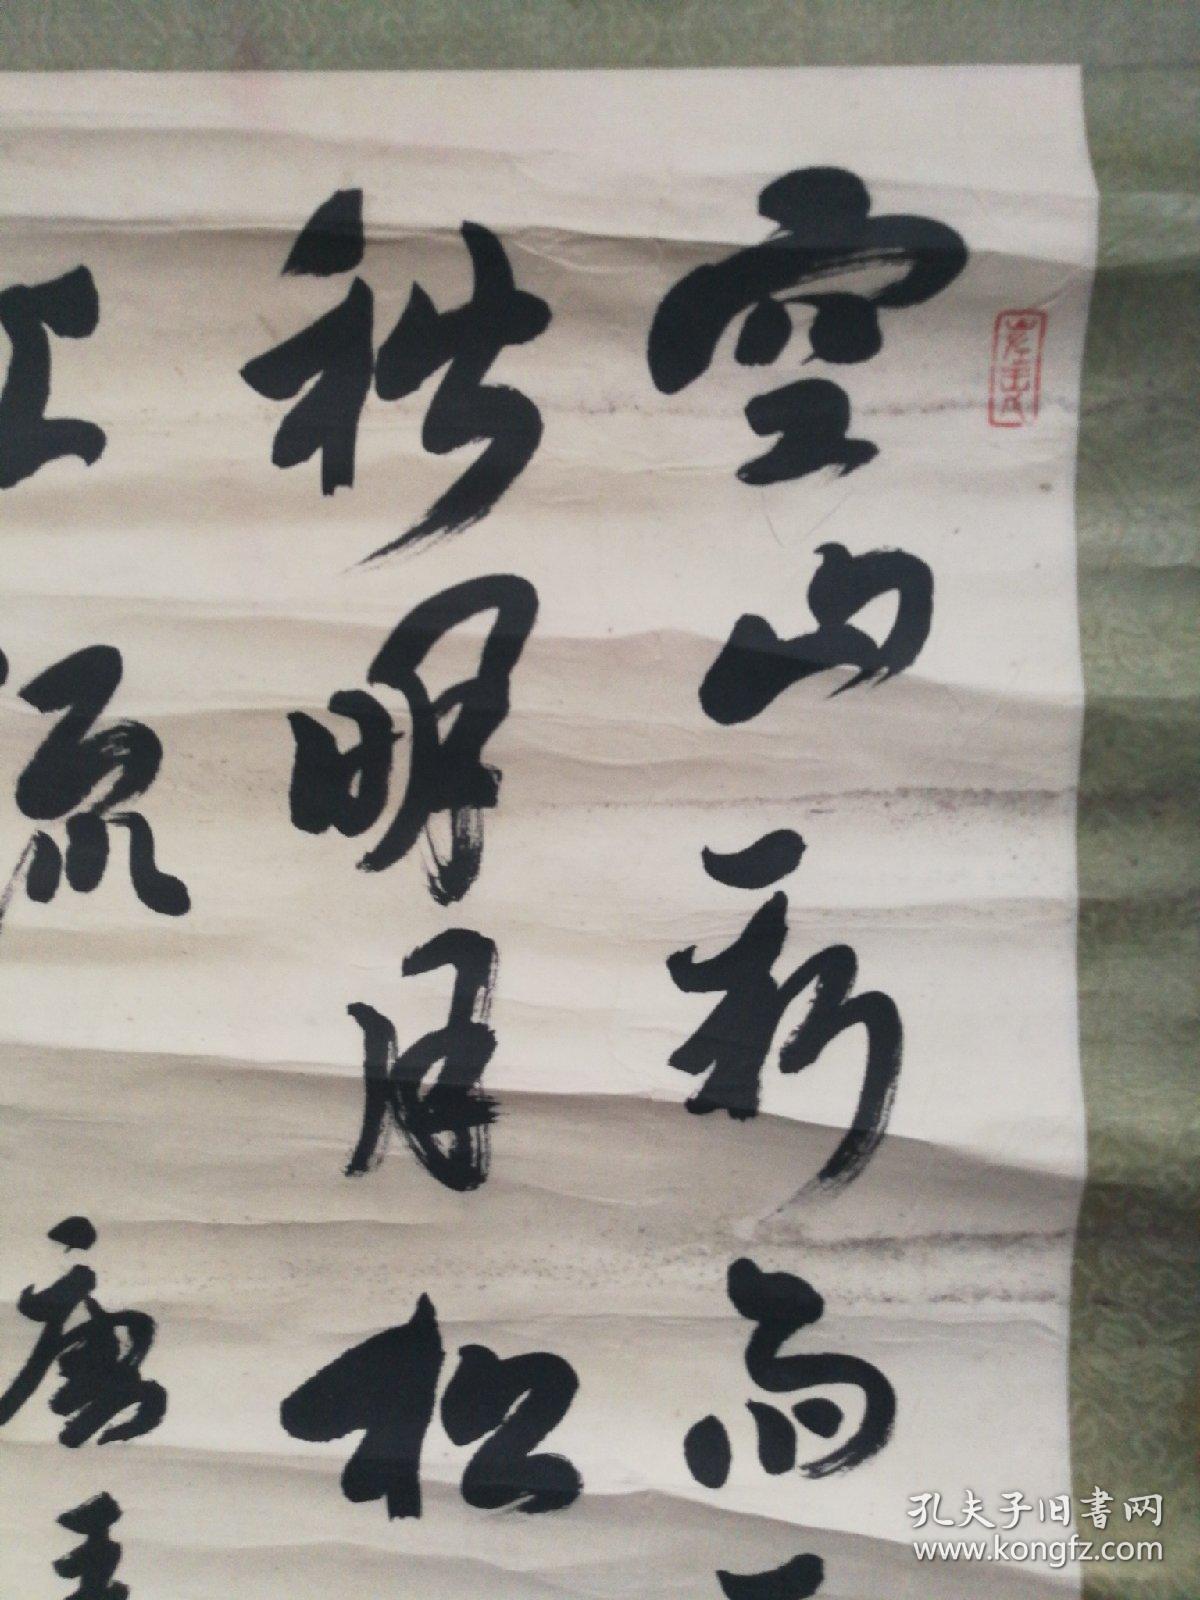 空山新雨
秋明月松
流
唐王
孔夫子旧书网
www.kongfz.com